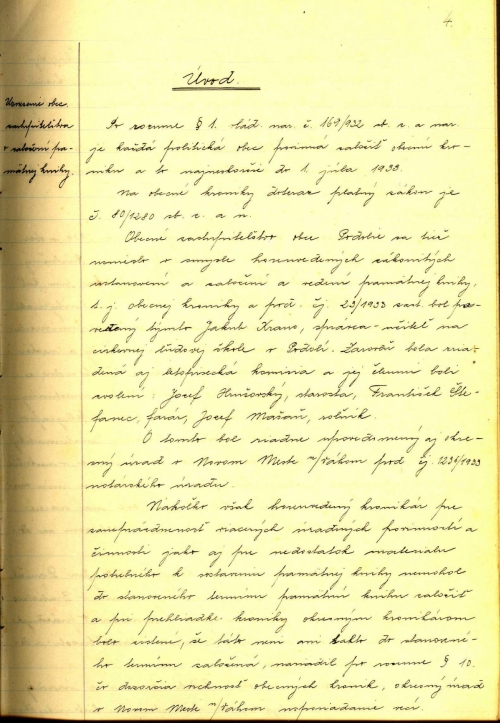 4.
Úvod.
Uznesenie obec.
zastupitelstva
o založení pa-
mätnej knihy.
Po rozume § 1. vlád. nar. č. 169/932 sb. z. a nar.
je každá politická obec povinná založiť obecnú kro-
niku a to najneskoršie do 1. júla 1933.
Na obecné kroniky doteraz platný zákon je
č. 80/1920 sb. z. a n.
Obecné zastupiteľstvo obce Podolie sa tiež
uznieslo v smysle horeuvedených zákonitých
ustanovení o založení a vedení pamätnej knihy,
t. j. obecnej kroniky a pod. čj. 23/1933 zast. bol po-
verený týmto Jakub Krano, správca-učiteľ na
cirkevnej ľudovej škole v Podolí. Zároveň bola zria-
dená aj letopisecká komisia a jej členmi boli
zvolení: Jozef Hrušovský, starosta, František Šte-
fanec, farár, Jozef Mašaň, roľník.
O tomto bol riadne upovedomený aj okre-
sný úrad v Novom Meste n/Váhom pod čj. 1236/1933
notárskeho úradu.
Nakoľko však horeuvedený kronikár pre
zaneprázdnenosť viacerých úradných povinností a
činností jako aj pre nedostatok materialu
potrebného k zostaveniu pamätnej knihy nemohol
do stanoveného termínu pamätnú knihu založiť
a pri prehliadke kroniky okresným kronikárom
bolo zistené, že táto není ani takto do stanovené-
ho termínu založená, nariadil po rozume § 10.
čo dozorčia vrchnosť obecných kroník, okresný úrad
v Novom Meste n/Váhom usporiadanie veci.